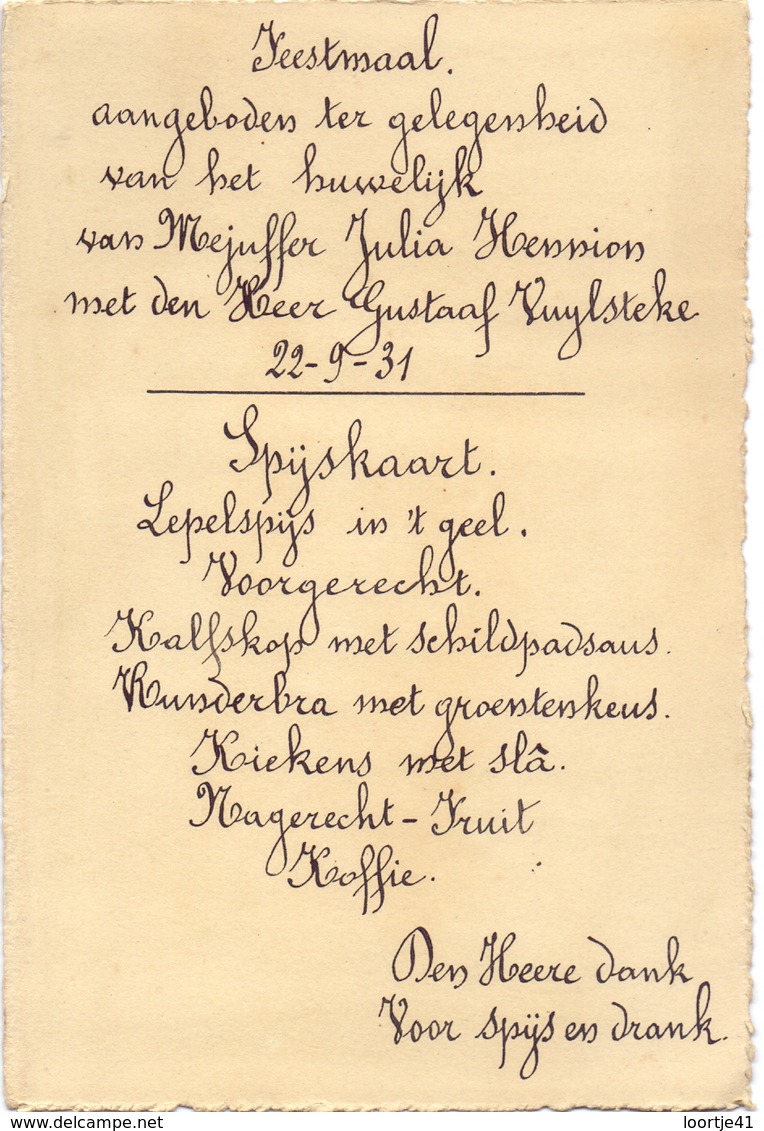 Feestmaal.
aangeboden ter gelegenheid
van het huwelijk
van Mejuffer Julia Hennion
met den Heer Gustaaf Vuylsteke
22-9-31
Spijskaart.
Lepelspijs in 't geel.
Voorgerecht.
Kalfskop met schildpadsaus.
Runderbra met groentenkeus.
Kiekens met slâ.
Nagerecht - Fruit
Koffie.
Den Heere dank
Voor spijs en drank.
www.delcampe.net
loortje41